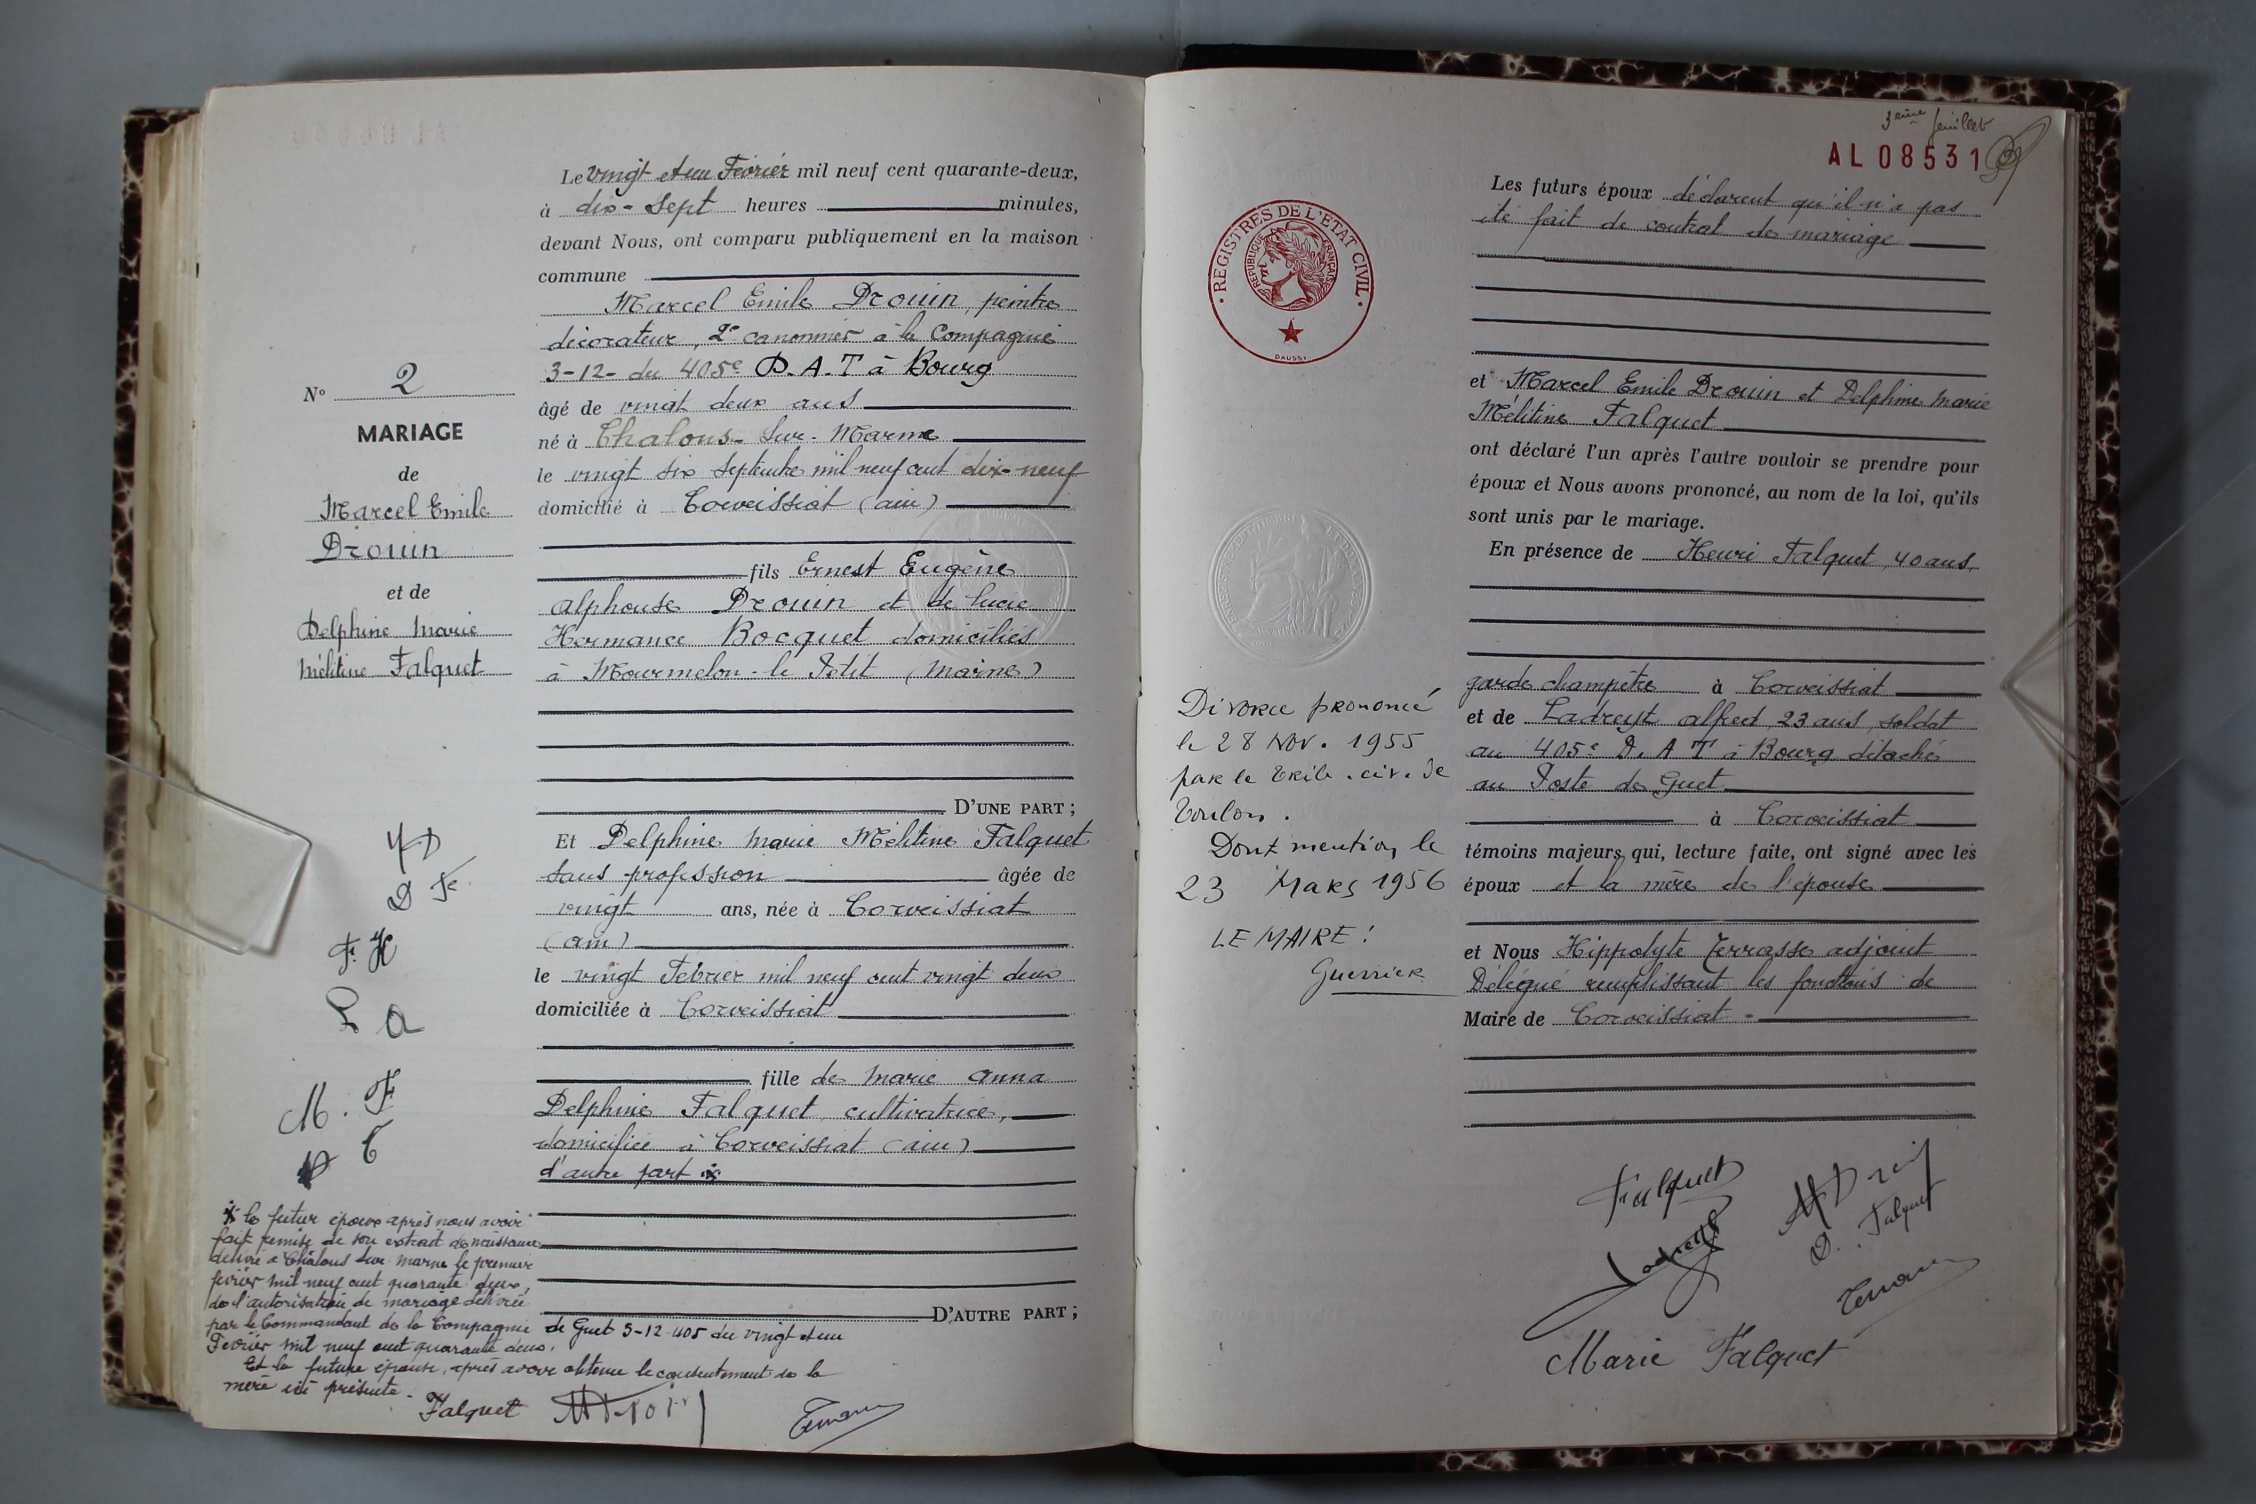 N° 2
MARIAGE
de
Marcel Emile
Drouin
et de
Delphine Marie
Mélitine Falquet
Le vingt et un Février mil neuf cent quarante-deux,
à dix-sept heures minutes,
devant Nous, ont comparu publiquement en la maison
commune
Marcel Emile Drouin, peintre
décorateur, 2e canonnier à la Compagnie
3-12- du 405e D.A.T à Bourg
âgé de vingt deux ans
né à Chalons-sur-Marne
le vingt six septembre mil neuf cent dix-neuf
domicilié à Corveissiat (ain)
fils Ernest Eugène
Alphonse Drouin et de Lucie
Hermance Bocquet domiciliés
à Mourmelon-le Petit (Marne)
D'UNE PART ;
Et Delphine Marie Mélitine Falquet
sans profession âgée de
vingt ans, née à Corveissiat
(ain)
le vingt Février mil neuf cent vingt deux
domiciliée à Corveissiat
fille de Marie Anna
Delphine Falquet, cultivatrice,
domiciliée à Corveissiat (ain)
d'autre part
D'AUTRE PART ;
MD
D Fe
F. H
L a
M. F
T
le futur époux après nous avoir
fait remise de son extrait de naissance
délivré à Châlons sur Marne le premier
février mil neuf cent quarante deux,
de l'autorisation de mariage délivrée
par le Commandant de la Compagnie de Guet 3-12-405 du vingt et un
Février mil neuf cent quarante deux.
Et la future épouse, après avoir obtenu le consentement de la
mère ici présente.
Falquet MDrouin Terrasse
3ème feuillet
AL 08531
REGISTRES DE L'ETAT CIVIL
REPUBLIQUE FRANÇAISE
DAUSSY
Les futurs époux déclarent qu'il n'a pas
été fait de contrat de mariage
et Marcel Emile Drouin et Delphine Marie
Mélitine Falquet
ont déclaré l'un après l'autre vouloir se prendre pour
époux et Nous avons prononcé, au nom de la loi, qu'ils
sont unis par le mariage.
En présence de Henri Falquet, 40 ans,
garde champêtre à Corveissiat
et de Ladreyt alfred, 23 ans, soldat
au 405e D.A T à Bourg détaché
au Poste de Guet
à Corveissiat
témoins majeurs qui, lecture faite, ont signé avec les
époux et la mère de l'épouse
et Nous Hippolyte Terrasse adjoint
Délégué remplissant les fonctions de
Maire de Corveissiat
Divorce prononcé
le 28 Nov. 1955
par le Trib. civ. de
Toulon.
Dont mention, le
23 Mars 1956
LE MAIRE :
Guerrier
Falquet
MDrouin
D. Falquet
Ladreyt
Terrasse
Marie Falquet